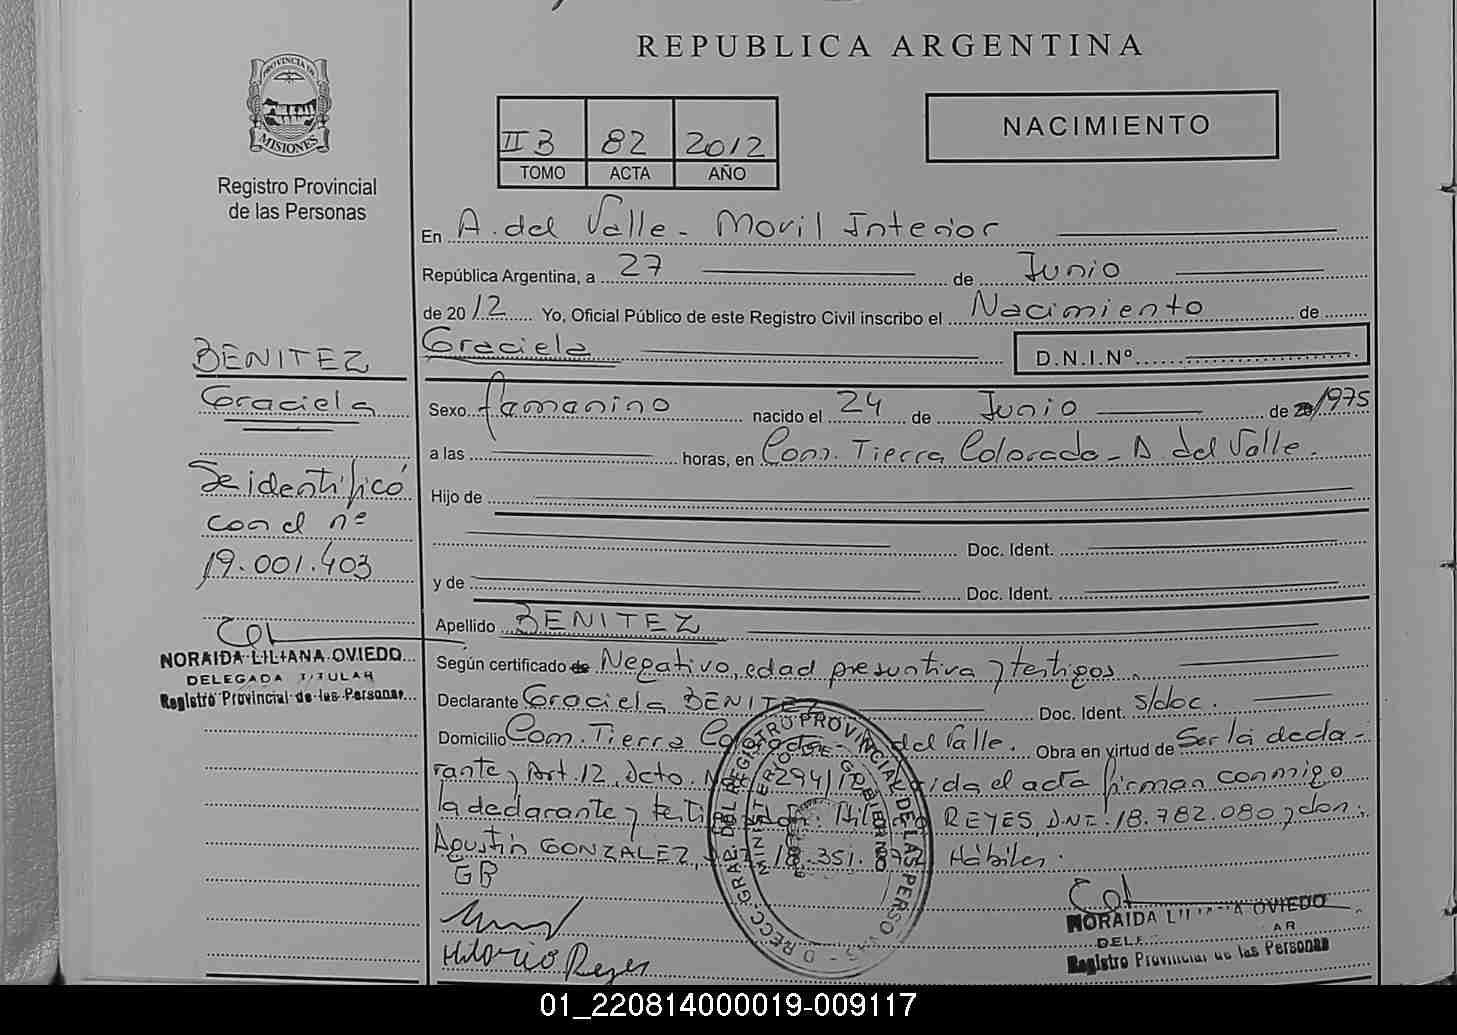 REPUBLICA ARGENTINA
PROVINCIA DE
MISIONES
Registro Provincial
de las Personas
II B 82 2012
TOMO ACTA AÑO
NACIMIENTO
En A. del Valle - Movil Interior
República Argentina, a 27 de Junio
de 2012 Yo, Oficial Público de este Registro Civil inscribo el Nacimiento de
Graciela D.N.I.Nº
BENITEZ
Graciela
Se identificó
con el nº
19.001.403
NORAIDA LILIANA OVIEDO
DELEGADA TITULAR
Registro Provincial de las Personas
Sexo famanino nacido el 24 de Junio de 20/1975
a las horas, en Com. Tierra Colorada - A del Valle.
Hijo de
Doc. Ident.
y de Doc. Ident.
Apellido BENITEZ
Según certificado de Negativo, edad presuntiva y testigos.
Declarante Graciela BENITEZ Doc. Ident. s/doc.
Domicilio Com. Tierra Colorada - del Valle. Obra en virtud de Ser la decla-
rante y Art. 12, Dcto. el acta firman conmigo
la declarante y REYES, DNI: 18.782.080 y don:
Agustín GONZALEZ, 18.351. Hábiles.
GB
Hilario Reyes
NORAIDA OVIEDO
Registro Provincial de las Personas
01_220814000019-009117